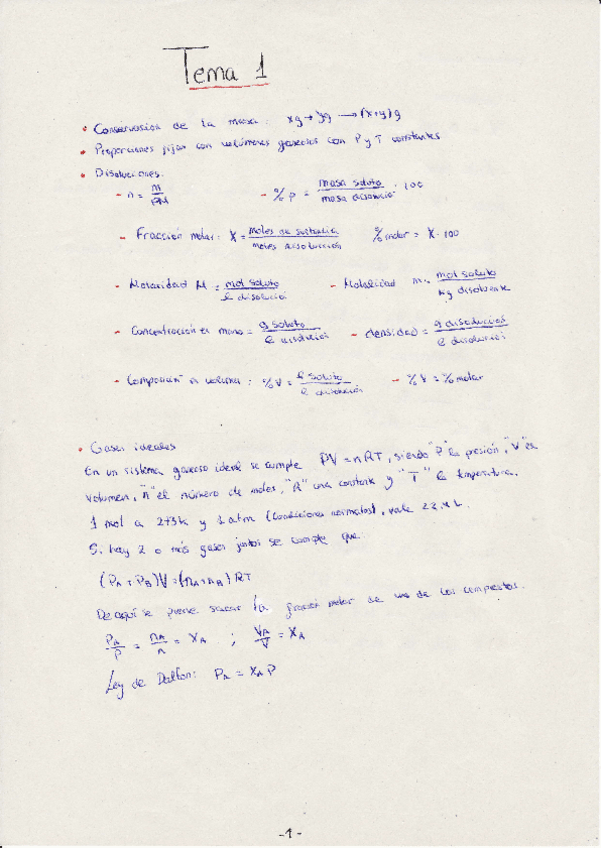 Tema 1
• Conservación de la masa: xg + yg → (x+y)g
• Proporciones fijas con volúmenes gaseosos con P y T constantes
• Disoluciones:
- n = m/PM - % p = masa soluto/masa disolució · 100
- Fracción molar: X = moles de sustancia/moles disolución % molar = X · 100
- Molaridad M = mol soluto/l disolució - Molalidad m = mol soluto/kg disolvente
- Concentración en masa = g soluto/l disolución - densidad = g disolución/l disolució
- Composición en volumen: % V = l soluto/l disolución - % V = % molar
• Gases ideales
En un sistema gaseoso ideal se cumple PV = nRT, siendo "P" la presión, "V" el
volumen, "n" el número de moles, "R" una constante y "T" la temperatura.
1 mol a 273k y 1 atm (condiciones normales), vale 22.4 L.
Si hay 2 o más gases juntos se cumple que:
(PA + PB)V = (nA + nB)RT
De aquí se puede sacar la fracció molar de uno de los compuestos.
PA/P = nA/n = XA ; VA/V = XA
Ley de Dalton: PA = XA P
-1-